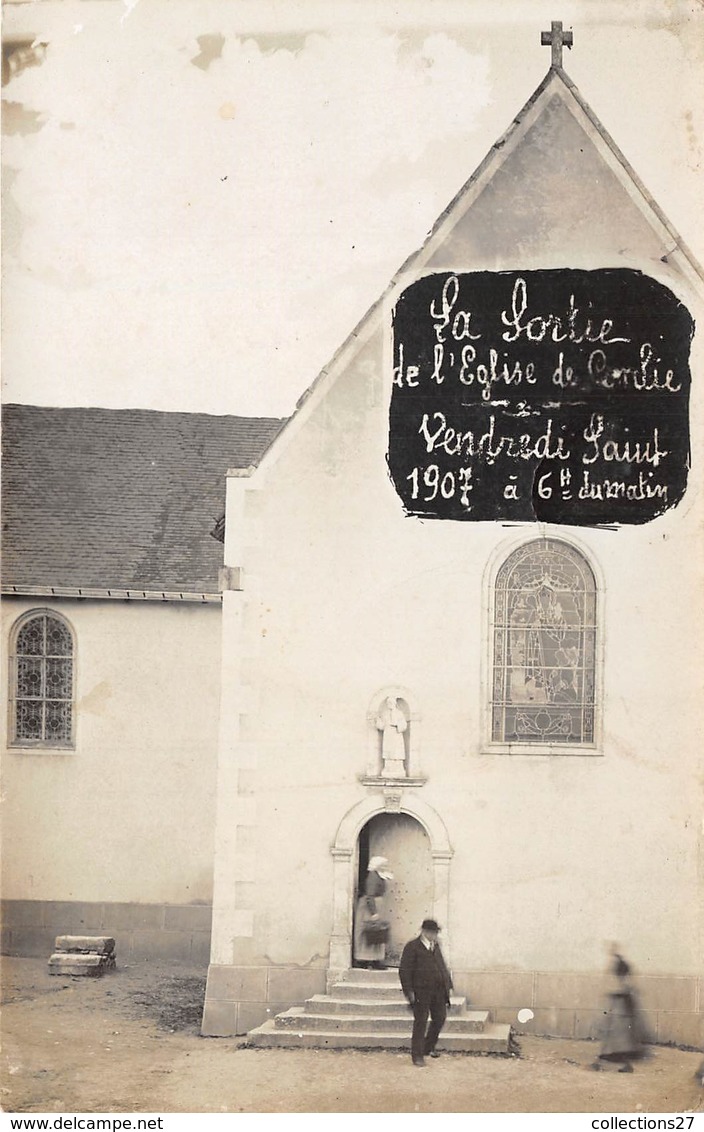 La Sortie
de l'Eglise de Cordie
Vendredi Saint
1907 à 6H du matin
collections27